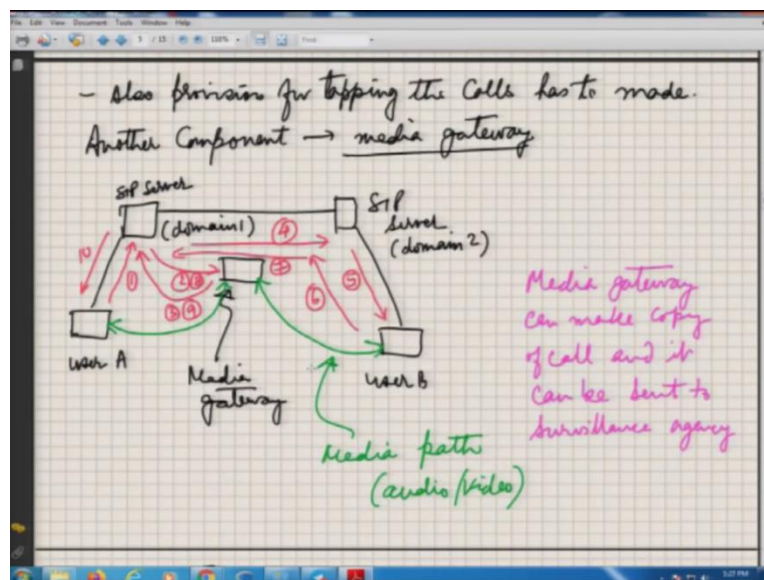 File Edit View Document Tools Window Help
5 / 15
118%
Find
- Also provision for tapping the calls has to made.
Another Component → media gateway
SIP Server
(domain 1)
SIP
Server
(domain 2)
10
1
2
8
3
9
4
7
5
6
User A
Media
gateway
User B
Media path
(audio/video)
Media gateway
can make copy
of call and it
can be sent to
survillance agency
5:27 PM